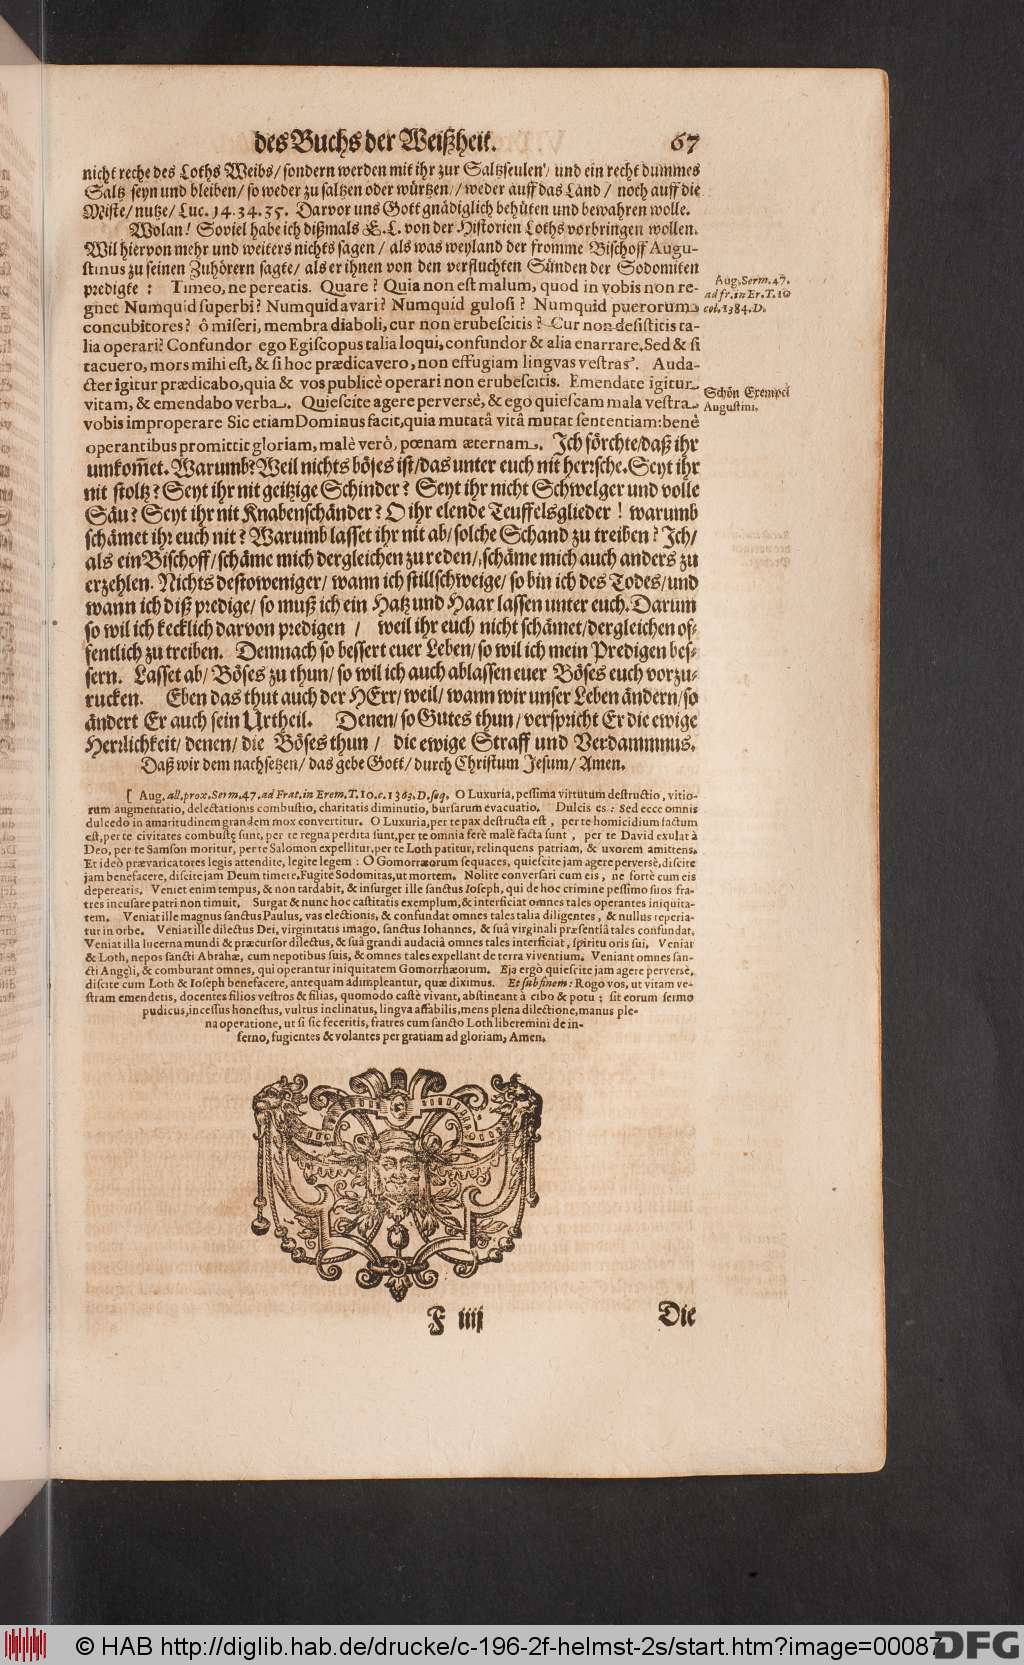 des Buchs der Weißheit. 67
nicht reche des Loths Weibs / sondern werden mit ihr zur Saltzseulen / und ein recht dummes
Saltz seyn und bleiben / so weder zu saltzen oder würtzen / weder auff das Land / noch auff die
Miste / nutze / Luc. 14. 34. 35. Darvor uns Gott gnädiglich behüten und bewahren wolle.
Wolan! Soviel habe ich dißmals E. L. von der Historien Loths vorbringen wollen.
Wil hiervon mehr und weiters nichts sagen / als was weyland der fromme Bischoff Augu-
stinus zu seinen Zuhörern sagte / als er ihnen von den verfluchten Sünden der Sodomiten
predigte: Timeo, ne pereatis. Quare? Quia non est malum, quod in vobis non re-
gnet Numquid superbi? Numquid avari? Numquid gulosi? Numquid puerorum
concubitores? ô miseri, membra diaboli, cur non erubescitis? Cur non desistitis ta-
lia operari? Confundor ego Egiscopus talia loqui, confundor & alia enarrare. Sed & si
tacuero, mors mihi est, & si hoc prædicavero, non effugiam lingvas vestras. Auda-
cter igitur prædicabo, quia & vos publicè operari non erubescitis. Emendate igitur
vitam, & emendabo verba. Quiescite agere perversè, & ego quiescam mala vestra
vobis improperare Sic etiam Dominus facit, quia mutatâ vitâ mutat sententiam: benè
operantibus promittit gloriam, malè verò, pœnam æternam. Ich förchte / daß ihr
umkom̃et. Warumb? Weil nichts böses ist / das unter euch nit hersche. Seyt ihr
nit stoltz? Seyt ihr nit geitzige Schinder? Seyt ihr nicht Schwelger und volle
Säu? Seyt ihr nit Knabenschänder? O ihr elende Teuffelsglieder! warumb
schämet ihr euch nit? Warumb lasset ihr nit ab / solche Schand zu treiben? Ich /
als ein Bischoff / schäme mich dergleichen zu reden / schäme mich auch anders zu
erzehlen. Nichts destoweniger / wann ich stillschweige / so bin ich des Todes / und
wann ich diß predige / so muß ich ein Hatz und Haar lassen unter euch. Darum
so wil ich kecklich darvon predigen / weil ihr euch nicht schämet / dergleichen of-
fentlich zu treiben. Demnach so bessert euer Leben / so wil ich mein Predigen bes-
sern. Lasset ab / Böses zu thun / so wil ich auch ablassen euer Böses euch vorzu-
rucken. Eben das thut auch der HErr / weil / wann wir unser Leben ändern / so
ändert Er auch sein Urtheil. Denen / so Gutes thun / verspricht Er die ewige
Herrlichkeit / denen / die Böses thun / die ewige Straff und Verdammnus.
Daß wir dem nachsetzen / das gebe Gott / durch Christum Jesum / Amen.
Aug. Serm. 47.
ad fr. in Er. T. 10
col. 1384. D.
Schön Exempel
Augustini.
[ Aug. all. prox. Serm. 47. ad Frat. in Erem. T. 10. c. 1363. D. seq. O Luxuria, pessima virtutum destructio, vitio-
rum augmentatio, delectationis combustio, charitatis diminutio, bursarum evacuatio. Dulcis es: Sed ecce omnis
dulcedo in amaritudinem grandem mox convertitur. O Luxuria, per te pax destructa est, per te homicidium factum
est, per te civitates combustę sunt, per te regna perdita sunt, per te omnia ferè malè facta sunt, per te David exulat à
Deo, per te Samson moritur, per te Salomon expellitur, per te Loth patitur, relinquens patriam, & uxorem amittens.
Et ideò prævaricatores legis attendite, legite legem: O Gomorræorum sequaces, quiescite jam agere perversè, discite
jam benefacere, discite jam Deum timere. Fugite Sodomitas, ut mortem. Nolite conversari cum eis, ne fortè cum eis
depereatis. Veniet enim tempus, & non tardabit, & insurget ille sanctus Ioseph, qui de hoc crimine pessimo suos fra-
tres incusare patri non timuit. Surgat & nunc hoc castitatis exemplum, & interficiat omnes tales operantes iniquita-
tem. Veniat ille magnus sanctus Paulus, vas electionis, & confundat omnes tales talia diligentes, & nullus reperia-
tur in orbe. Veniat ille dilectus Dei, virginitatis imago, sanctus Iohannes, & suâ virginali præsentiâ tales confundat.
Veniat illa lucerna mundi & præcursor dilectus, & suâ grandi audaciâ omnes tales interficiat, spiritu oris sui. Veniat
& Loth, nepos sancti Abrahæ, cum nepotibus suis, & omnes tales expellant de terra viventium. Veniant omnes san-
cti Angeli, & comburant omnes, qui operantur iniquitatem Gomorrhæorum. Eja ergò quiescite jam agere perversè,
discite cum Loth & Ioseph benefacere, antequam adimpleantur, quæ diximus. Et sub finem: Rogo vos, ut vitam ve-
stram emendetis, docentes filios vestros & filias, quomodo castè vivant, abstineant à cibo & potu; sit eorum sermo
pudicus, incessus honestus, vultus inclinatus, lingva affabilis, mens plena dilectione, manus ple-
na operatione, ut si sic feceritis, fratres cum sancto Loth liberemini de in-
ferno, fugientes & volantes per gratiam ad gloriam, Amen.
F iiij Die
© HAB http://diglib.hab.de/drucke/c-196-2f-helmst-2s/start.htm?image=00087
DFG